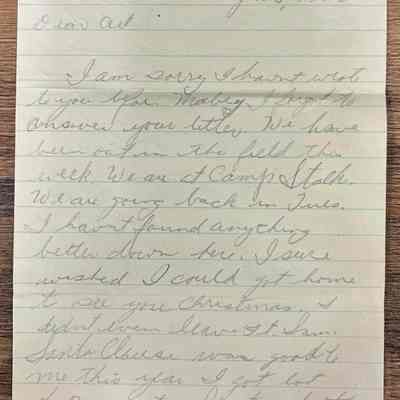 Dear Art
I am sorry I havnt wrote
to you I forgot to
answer your letter. We have
been out in the field this
week. We are at Camp Stalk.
We are going back in Tues.
I havnt found anything
better down here. I sure
wished I could got home
to see you Christmas. I
didnt even leave Ft. Sam.
Santa Clause was good to
me this year I got lot